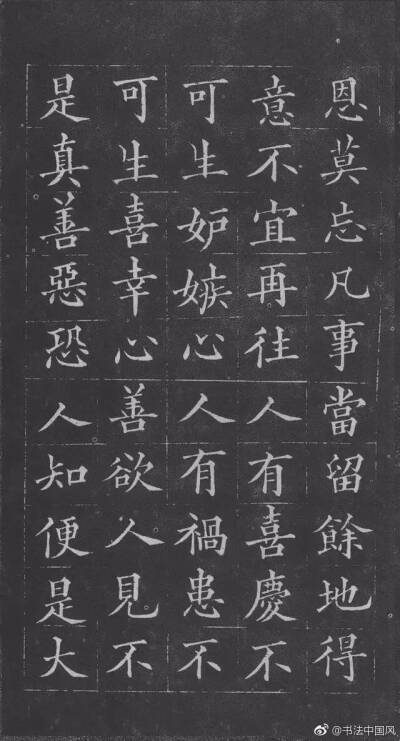 恩莫忘凡事當留餘地得
意不宜再往人有喜慶不
可生妒嫉心人有禍患不
可生喜幸心善欲人見不
是真善惡恐人知便是大
@书法中国风